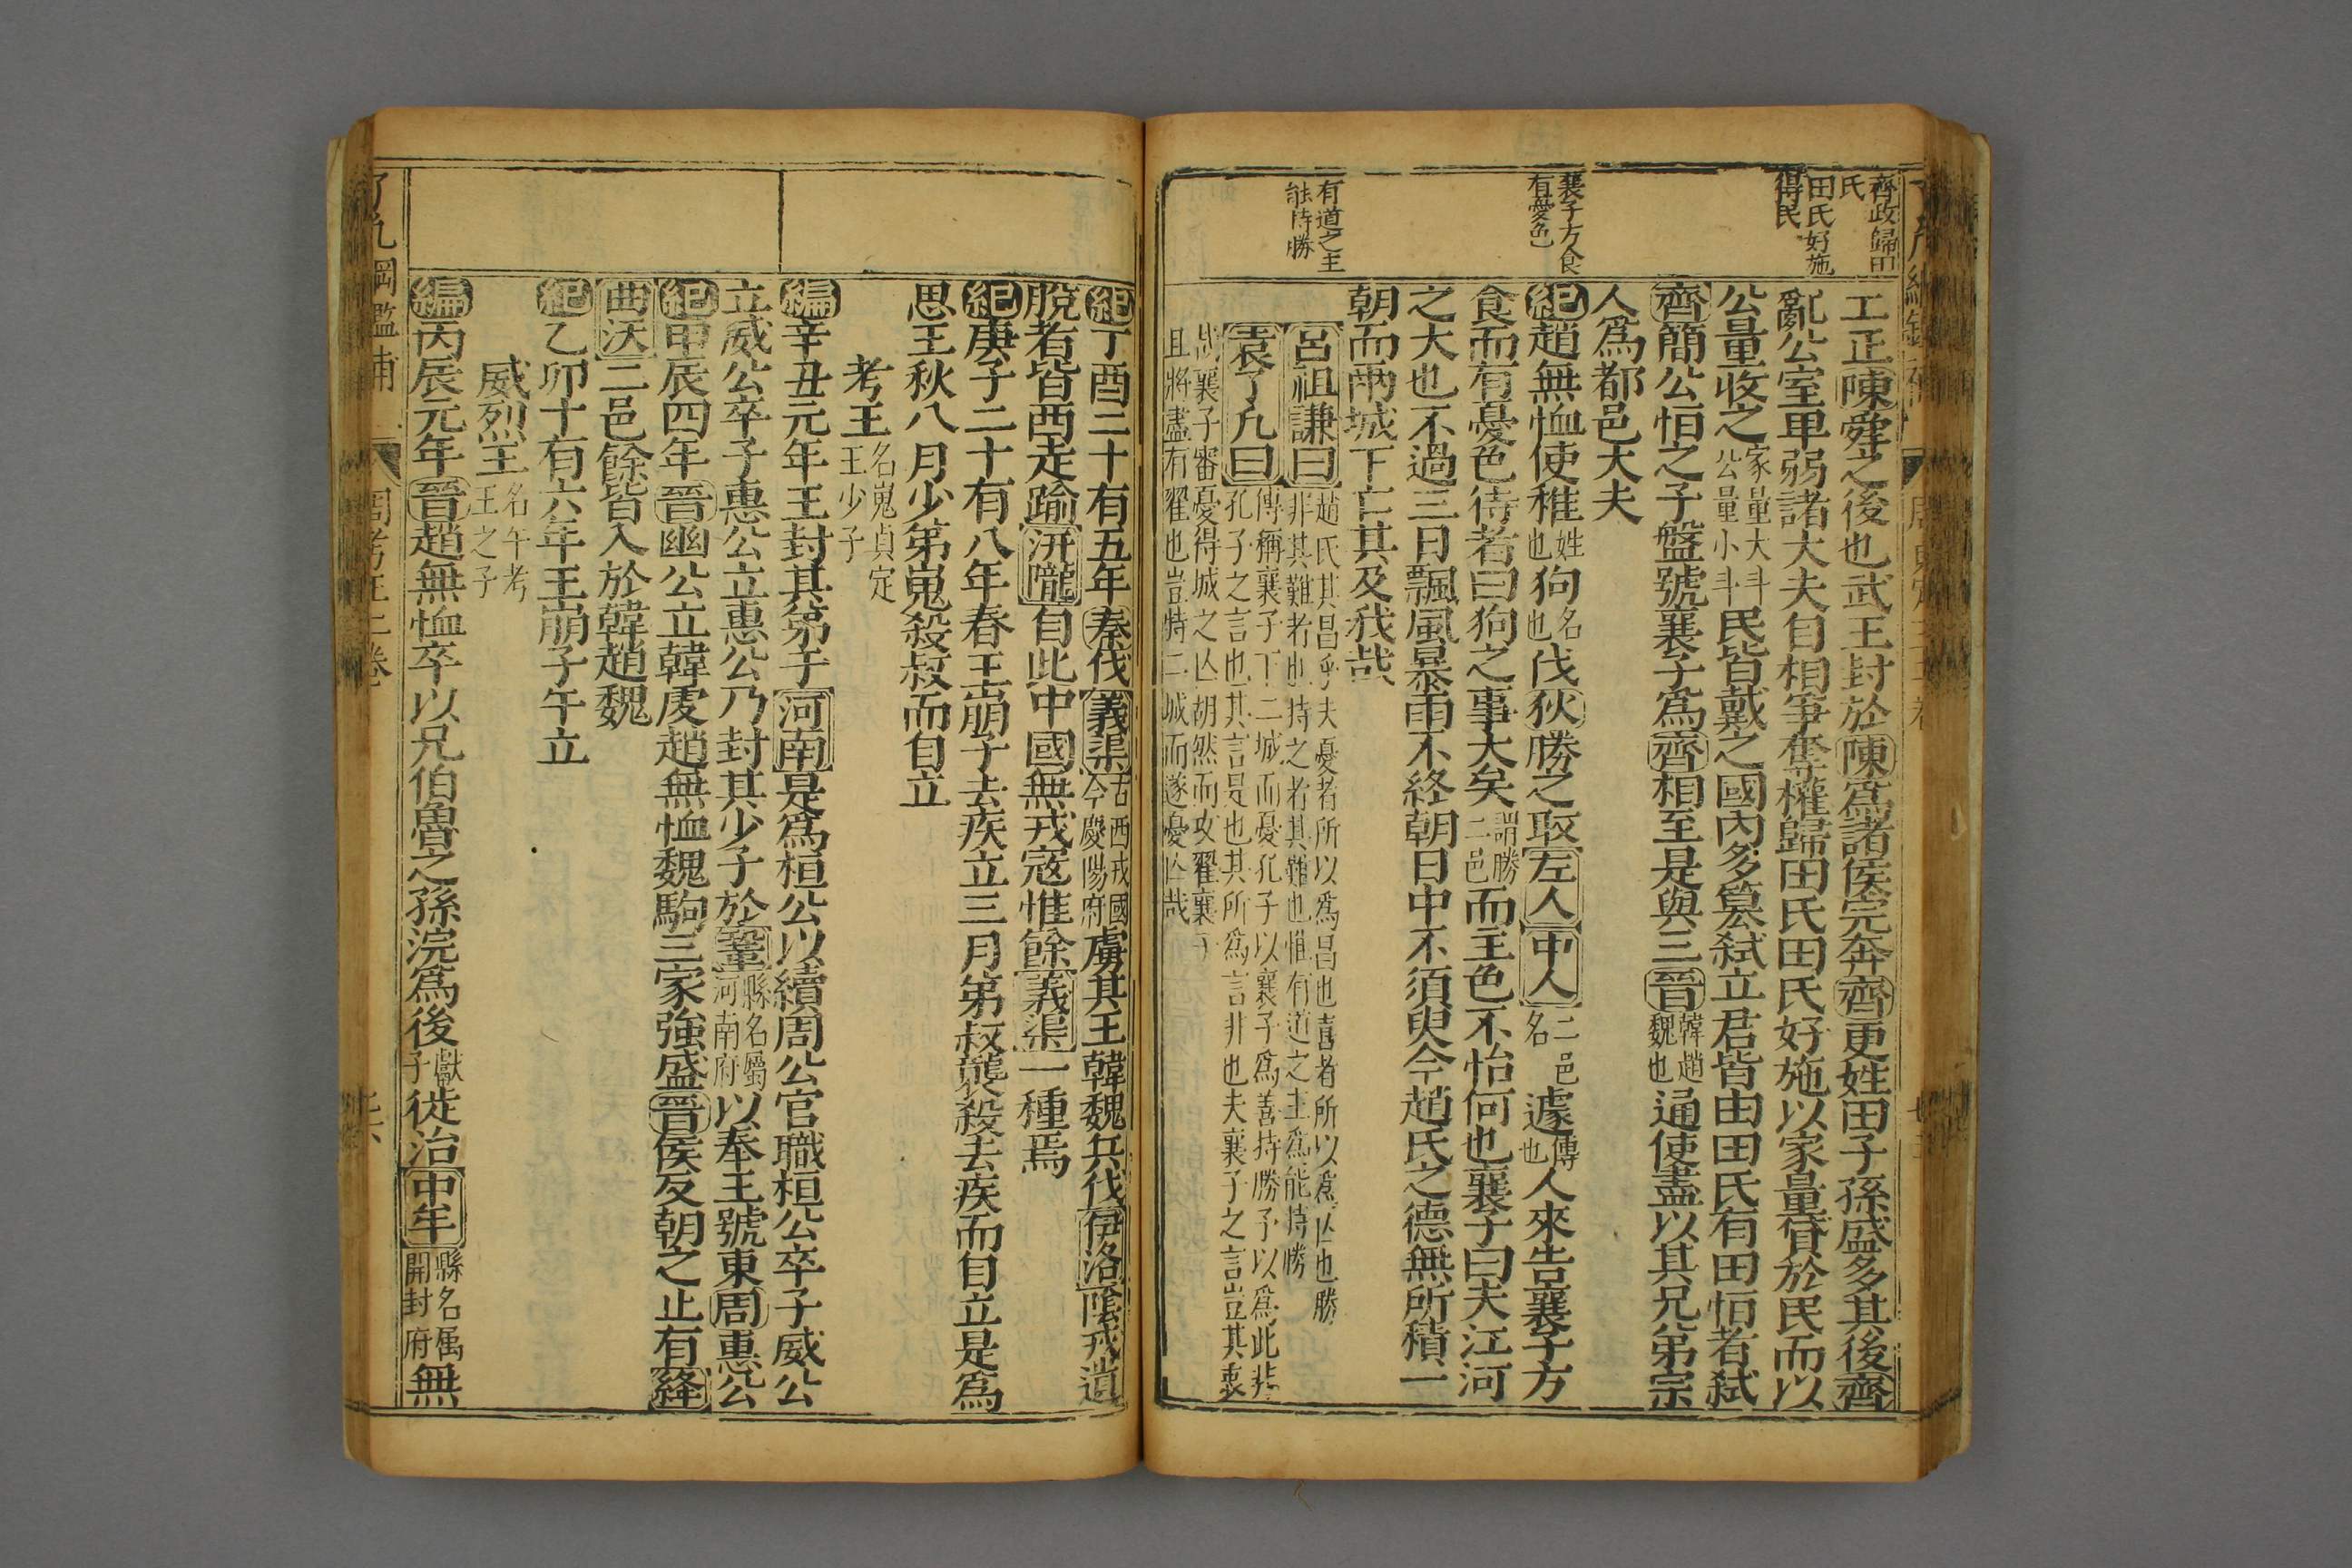 齊政歸田
氏
田氏好施
得民
襄子方食
有憂色
有道之主
能持勝
工正陳舜之後也武王封於陳為諸侯完奔齊更姓田子孫盛多其後齊
亂公室卑弱諸大夫自相爭奪權歸田氏田氏好施以家量貸於民而以
公量收之家量大斗公量小斗民皆戴之國內多篡弒立君皆由田氏有田恒者弒
齊簡公恒之子盤號襄子為齊相至是與三晉韓趙魏也通使盡以其兄弟宗
人為都邑大夫
紀趙無恤使稚姓也狗名也伐狄勝之取左人中人二邑名遽傳也人來告襄子方
食而有憂色待者曰狗之事大矣謂勝二邑而主色不怡何也襄子曰夫江河
之大也不過三日飄風暴雨不終朝日中不須臾今趙氏之德無所積一
朝而兩城下亡其及我哉
呂祖謙曰趙氏其昌乎夫憂者所以為昌也喜者所以為亾也勝
非其難者也持之者其難也惟有道之主為能持勝
袁了凡曰傳稱襄子下二城而憂孔子以襄子為善持勝予以為此非
孔子之言也其言是也其所為言非也夫襄子之言豈其衷
哉襄子審憂得城之亾胡然而攻翟襄子
且將盡有翟也豈特二城而遂憂亾哉
紀丁酉二十有五年秦伐義渠古西戎國今慶陽府虜其王韓魏兵伐伊洛陰戎遺
脫者皆西走踰汧隴自此中國無戎寇惟餘義渠一種焉
紀庚子二十有八年春王崩子去疾立三月弟叔襲殺去疾而自立是為
思王秋八月少弟嵬殺叔而自立
考王名嵬貞定王少子
編辛丑元年王封其弟于河南是為桓公以續周公官職桓公卒子威公
立威公卒子惠公立惠公乃封其少子於鞏縣名屬河南府以奉王號東周惠公
紀甲辰四年晉幽公立韓虔趙無恤魏駒三家強盛晉侯反朝之止有絳
曲沃二邑餘皆入於韓趙魏
紀乙卯十有六年王崩子午立
威烈王名午考王之子
編丙辰元年晉趙無恤卒以兄伯魯之孫浣為後獻子徙治中牟縣名属開封府無
了凡綱鑑補 周考王二卷